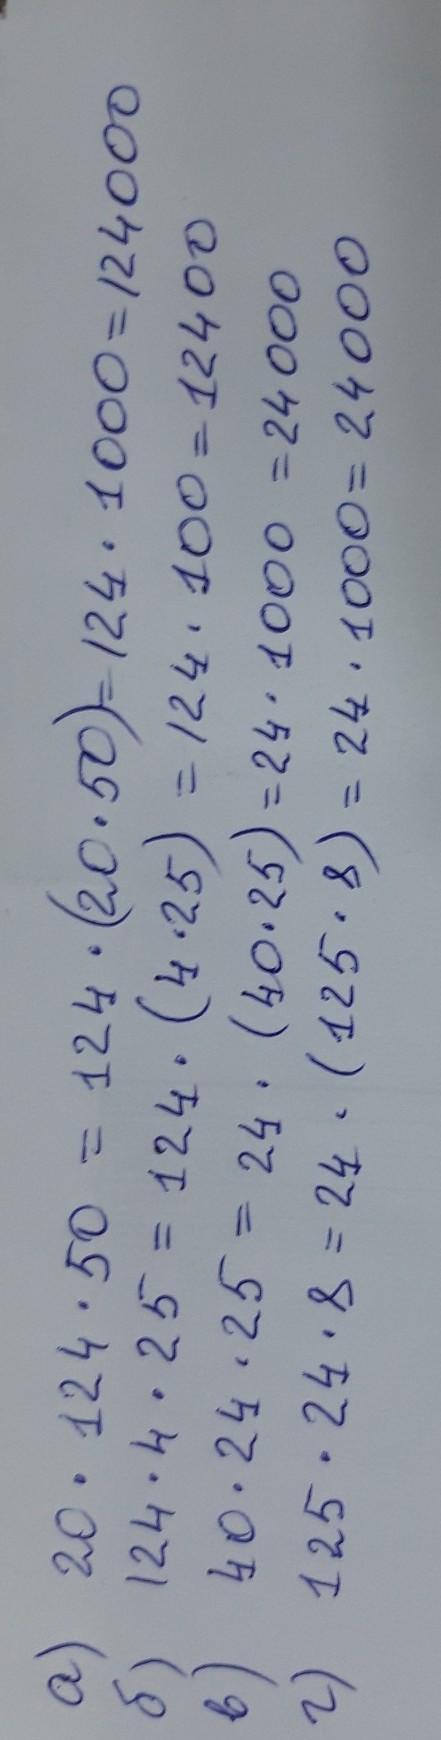 а) 20 · 124 · 50 = 124 · (20 · 50) = 124 · 1000 = 124000
б) 124 · 4 · 25 = 124 · (4 · 25) = 124 · 100 = 12400
в) 40 · 24 · 25 = 24 · (40 · 25) = 24 · 1000 = 24000
г) 125 · 24 · 8 = 24 · (125 · 8) = 24 · 1000 = 24000